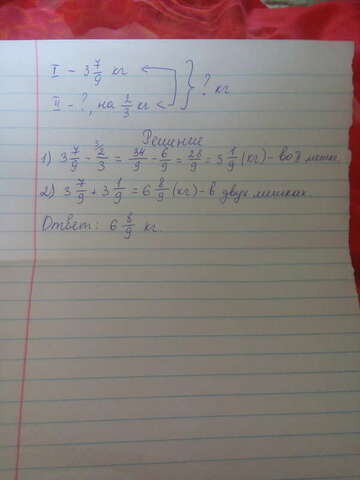 I - 3 7/9 кг
II - ?, на 2/3 кг <
} ? кг
Решение
1) 3 7/9 - 2/3 = 34/9 - 6/9 = 28/9 = 3 1/9 (кг) - во II мешке.
2) 3 7/9 + 3 1/9 = 6 8/9 (кг) - в двух мешках.
Ответ: 6 8/9 кг.